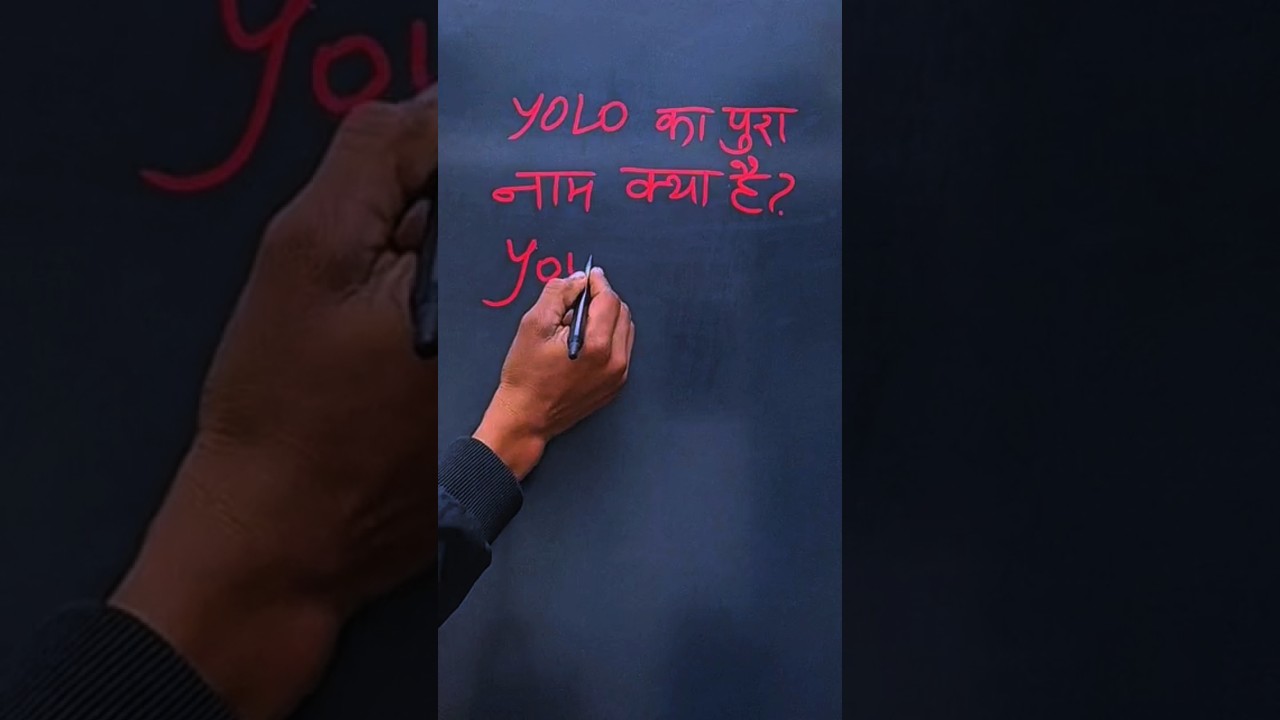 YOLO का पुरा
नाम क्या है?
You